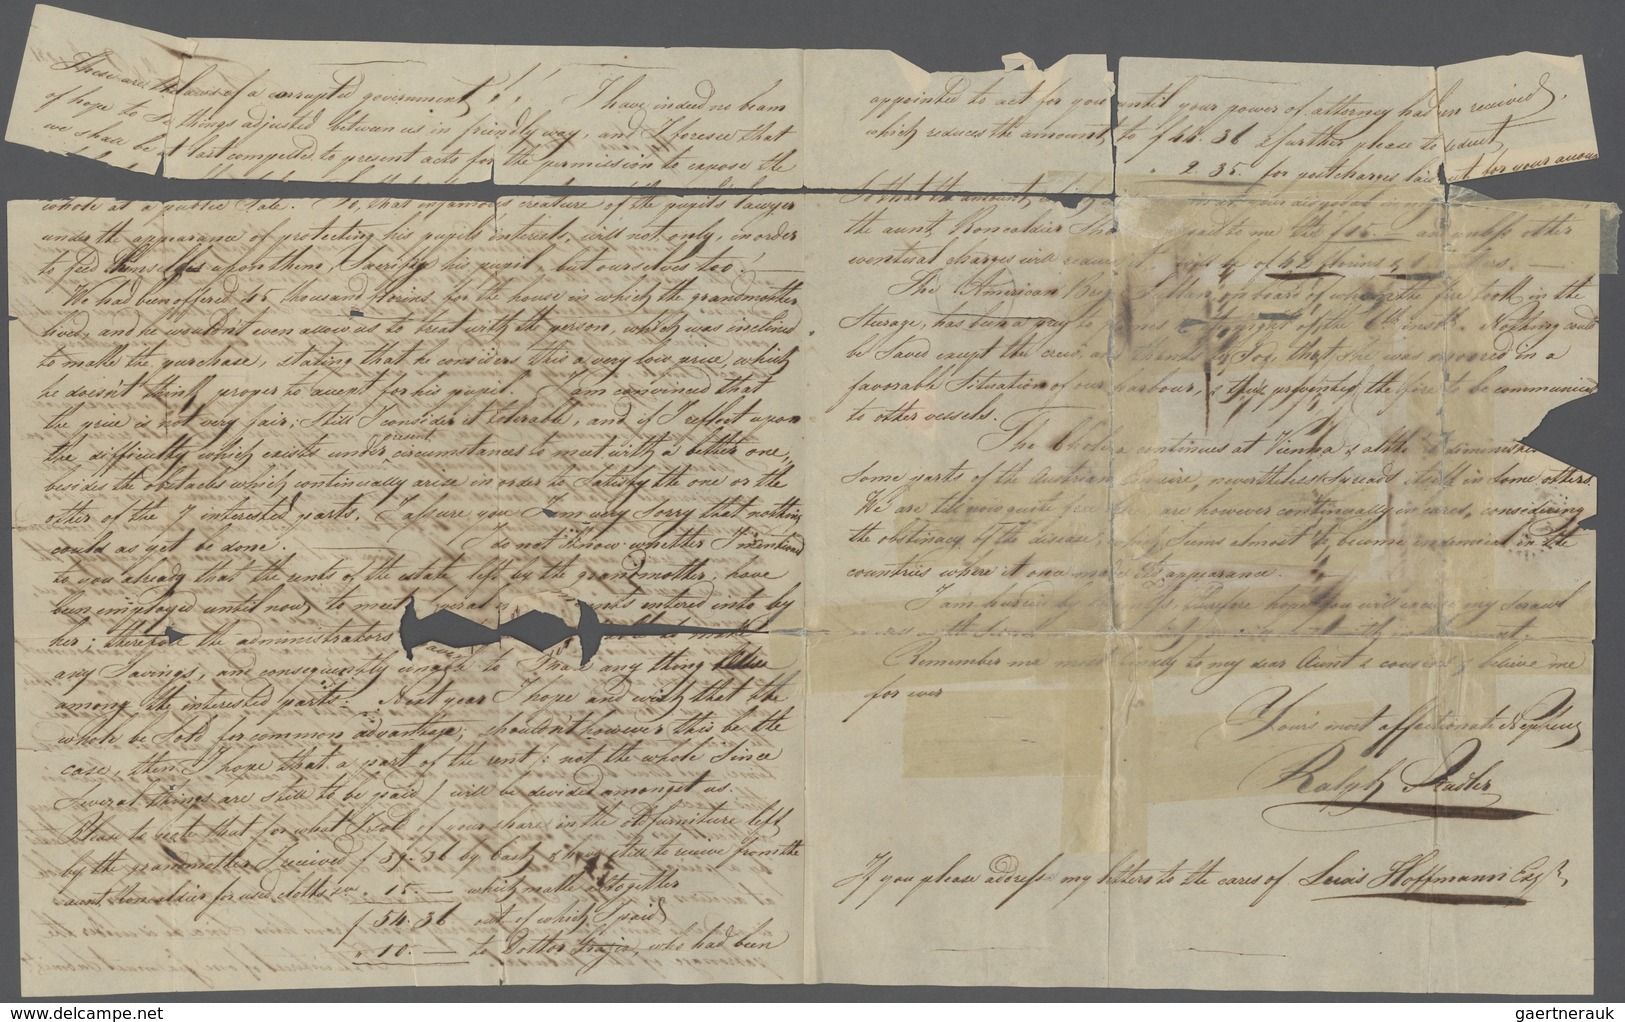 These are the laws of a corrupted government! ! I have indeed no beam
of hope to see things adjusted between us in friendly way, and I foresee that
we shall be at last compelled to present acts for the permission to expose the
whole at a public Sale. So, that infamous creature of the pupil's lawyer
under the appearance of protecting his pupils interest, will not only, in order
to feed themselves upon them, Sacrify his pupil, but ourselves too!
We had been offered 45 thousand florins for the house in which the grandmother
lived, and he wouldn't even allow us to treat with the person, which was inclined
to make the purchase, stating that he considers this a very low price, which
he doesn't think proper to accept for his pupil. I am convinced that
the price is not very fair; still I consider it tolerable, and if I reflect upon
the difficulty which exists under present circumstances to meet with a better one,
besides the obstacles which continually arise in order to satisfy the one or the
other of the 7 interested parts, I assure you I am very sorry that nothing
could as yet be done. I do not know whether I mentioned
to you already that the rents of the estate left by the grandmother, have
been employed until now, to meet several entered into by
her; therefore the administrators to make
any Savings, and consequently to Share any thing
among the interested parts. Next year I hope and wish that the
whole be Sold for common advantage; shouldn't however this be the
case, then I hope that a part of the rent (: not the whole Since
Several things are still to be paid) will be divided amongst us.
Please to note that for what I sold of your share in the old furniture left
by the grandmother I received f 39.36 by cash, & have still to receive from the
aunt Roncaldier for used clothes " 15. — which make altogether
f 54.36 out of which I paid
" 10. — to Dottor Grazia, who had been
appointed to act for you until your power of attorney had been received,
which reduces the amount to f 44.36 & further please to deduct
" 2.35. for postcharges laid out for your account
So that the amount at your disposal in my
the aunt Roncaldier Shall paid to me the f 15. — and unless other
eventual charges will be of 42 florins
The American Brig on board of whom the fire took in the
Steerage, has been a prey to flames night of the 6th inst. Nothing could
be Saved except the crew, and thanks by God, that She was moored in a
favorable Situation of our harbour, & thus prevented the fire to be communicated
to other vessels.
The Cholera continues at Vienna & altho' diminished
Some parts of the Austrian Empire, nevertheless spreads itself in Some others.
We are till now quite free are however continually in cares, considering
the obstinacy of the disease, which Seems almost to become endemical in the
countries where it once made its appearance.
I am hurried by therefore hope you will excuse my Scrawl
Remember me most kindly to my dear Aunt & cousins & believe me
for ever
Your's most affectionate Nephew
Ralph Sadler
If you please address my letters to the cares of Louis Hoffmann Esqr.
gaertnerauk